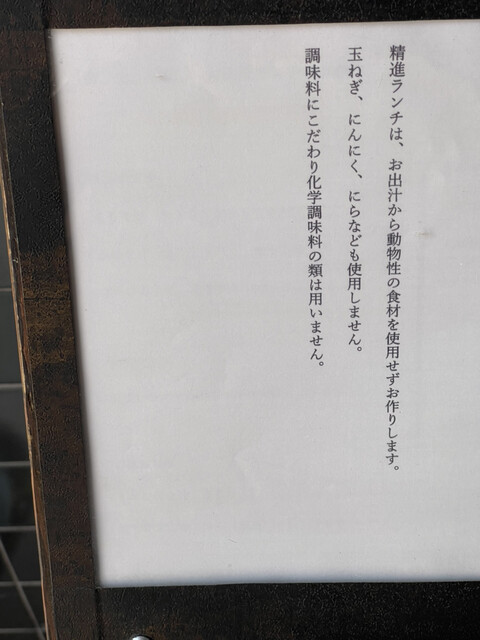 精進ランチは、お出汁から動物性の食材を使用せずお作りします。
玉ねぎ、にんにく、にらなども使用しません。
調味料にこだわり化学調味料の類は用いません。